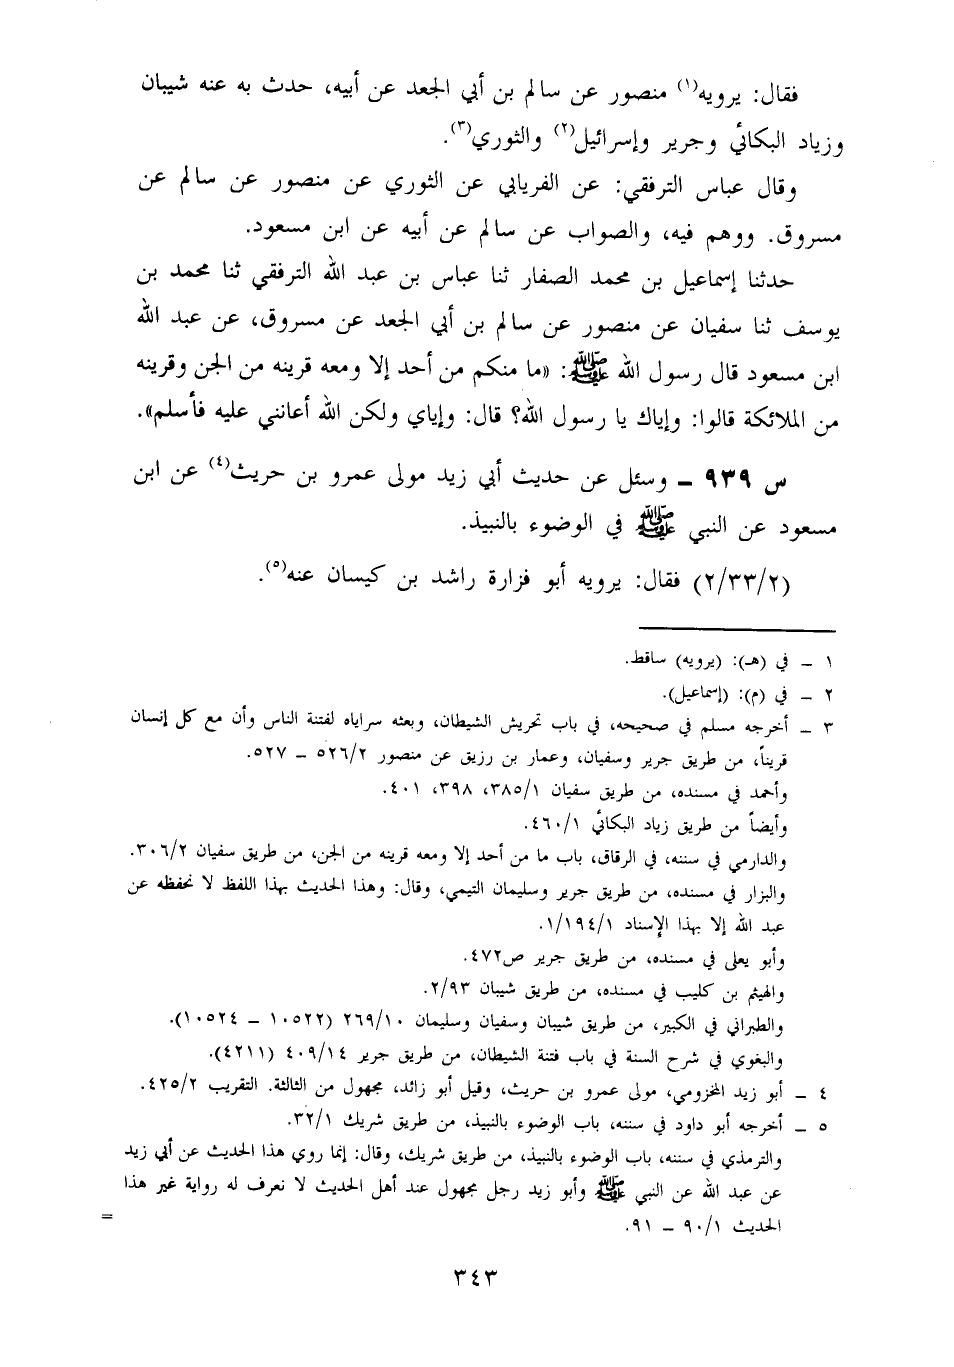 فقال: يرويه(١) منصور عن سالم بن أبي الجعد عن أبيه، حدث به عنه شيبان
وزياد البكائي وجرير وإسرائيل(٢) والثوري(٣).
وقال عباس الترفقي: عن الفريابي عن الثوري عن منصور عن سالم عن
مسروق. ووهم فيه، والصواب عن سالم عن أبيه عن ابن مسعود.
حدثنا إسماعيل بن محمد الصفار ثنا عباس بن عبد الله الترفقي ثنا محمد بن
يوسف ثنا سفيان عن منصور عن سالم بن أبي الجعد عن مسروق، عن عبد الله
ابن مسعود قال رسول الله ﷺ: «ما منكم من أحد إلا ومعه قرينه من الجن وقرينه
من الملائكة قالوا: وإياك يا رسول الله؟ قال: وإياي ولكن الله أعانني عليه فأسلم».
س ٩٣٩ - وسئل عن حديث أبي زيد مولى عمرو بن حريث(٤) عن ابن
مسعود عن النبي ﷺ في الوضوء بالنبيذ.
(٢/٣٣/٢) فقال: يرويه أبو فزارة راشد بن كيسان عنه(٥).
١ - في (هـ): (يرويه) ساقط.
٢ - في (م): (إسماعيل).
٣ - أخرجه مسلم في صحيحه، في باب تحريش الشيطان، وبعثه سراياه لفتنة الناس وأن مع كل إنسان
قريناً، من طريق جرير وسفيان، وعمار بن رزيق عن منصور ٥٢٦/٢ - ٥٢٧.
وأحمد في مسنده، من طريق سفيان ٣٨٥/١، ٣٩٨، ٤٠١.
وأيضاً من طريق زياد البكائي ٤٦٠/١.
والدارمي في سننه، في الرقاق، باب ما من أحد إلا ومعه قرينه من الجن، من طريق سفيان ٣٠٦/٢.
والبزار في مسنده، من طريق جرير وسليمان التيمي، وقال: وهذا الحديث بهذا اللفظ لا نحفظه عن
عبد الله إلا بهذا الإسناد ١/١٩٤/١.
وأبو يعلى في مسنده، من طريق جرير ص٤٧٢.
والهيثم بن كليب في مسنده، من طريق شيبان ٢/٩٣.
والطبراني في الكبير، من طريق شيبان وسفيان وسليمان ٢٦٩/١٠ (١٠٥٢٢ - ١٠٥٢٤).
والبغوي في شرح السنة في باب فتنة الشيطان، من طريق جرير ٤٠٩/١٤ (٤٢١١).
٤ - أبو زيد المخزومي، مولى عمرو بن حريث، وقيل أبو زائد، مجهول من الثالثة. التقريب ٤٢٥/٢.
٥ - أخرجه أبو داود في سننه، باب الوضوء بالنبيذ، من طريق شريك ٣٢/١.
والترمذي في سننه، باب الوضوء بالنبيذ، من طريق شريك، وقال: إنما روي هذا الحديث عن أبي زيد
عن عبد الله عن النبي ﷺ وأبو زيد رجل مجهول عند أهل الحديث لا نعرف له رواية غير هذا
الحديث ٩٠/١ - ٩١. =
٣٤٣